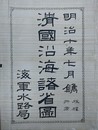 明治十年七月鐫
清國沿海諸省圖
海軍水路局